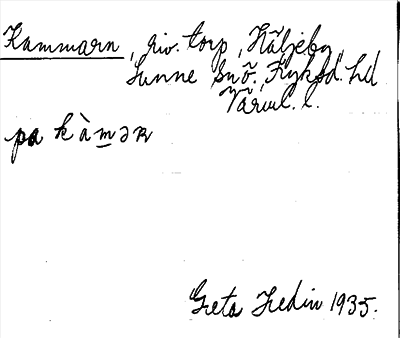 Kammarn, riv. torp, Häljeby,
Sunne snō. Fryksd. hd
Värml. l.
pa kàmər
Greta Hedin 1935.